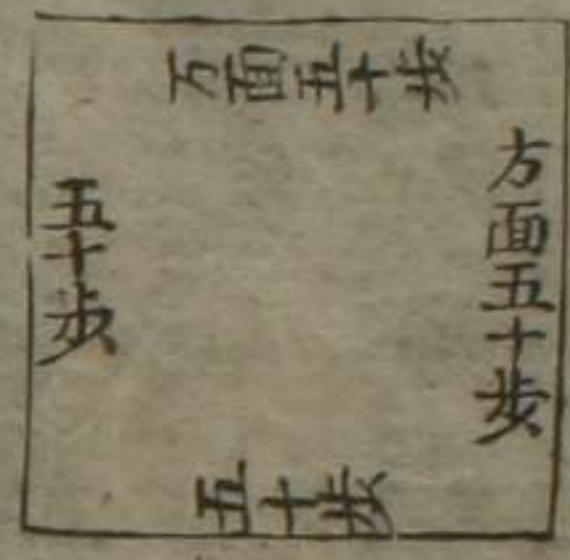 方面五十步
方面五十步
五十步
五十步